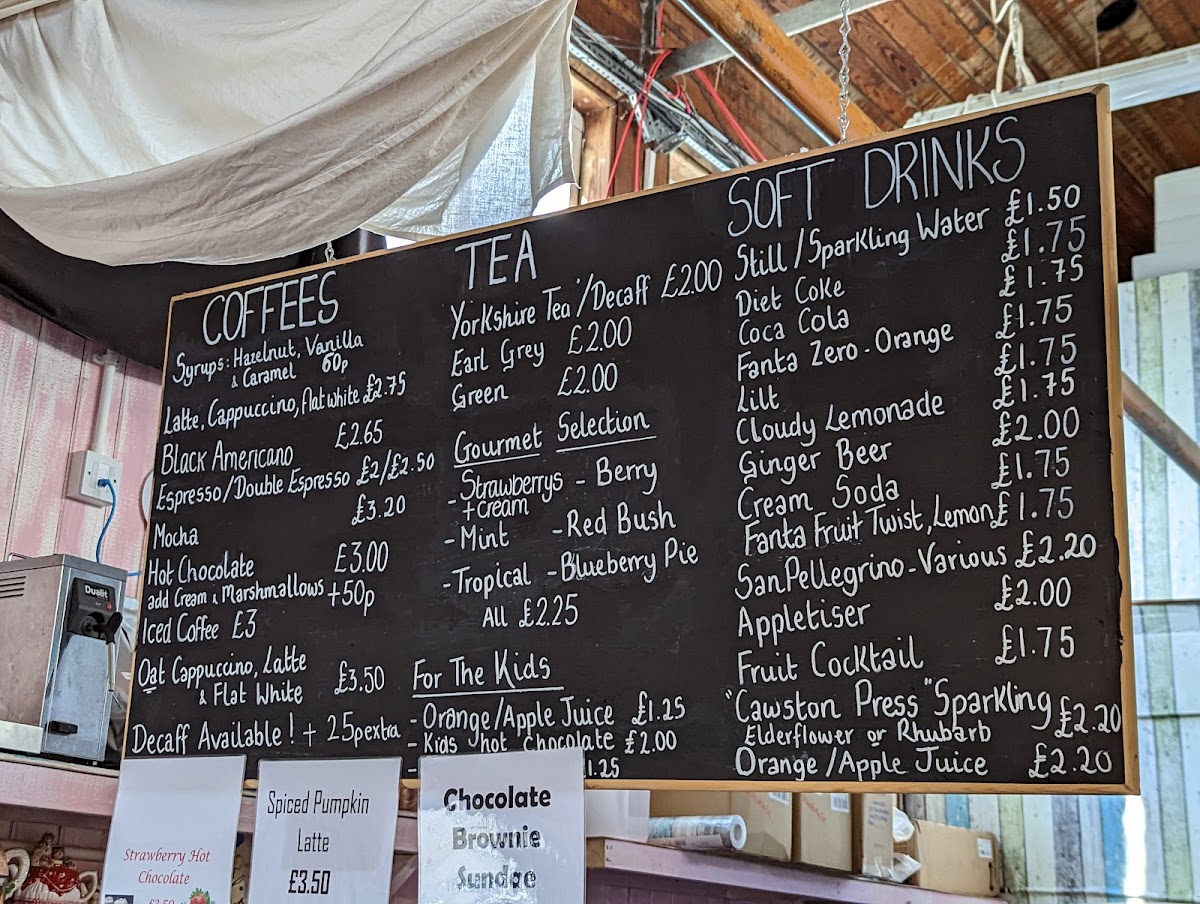 COFFEES
Syrups: Hazelnut, Vanilla
& Caramel 60p
Latte, Cappuccino, flat white £2.75
Black Americano £2.65
Espresso/Double Espresso £2/£2.50
Mocha £3.20
Hot Chocolate £3.00
add Cream & Marshmallows +50p
Iced Coffee £3
Oat Cappuccino, Latte
& Flat White £3.50
Decaff Available! + 25p extra
TEA
Yorkshire Tea/Decaff £2.00
Earl Grey £2.00
Green £2.00
Gourmet Selection
- Strawberrys - Berry
+ cream
- Mint - Red Bush
- Tropical - Blueberry Pie
All £2.25
For The Kids
- Orange/Apple Juice £1.25
- Kids hot Chocolate £2.00
1.25
SOFT DRINKS
Still/Sparkling Water £1.50
Diet Coke £1.75
Coca Cola £1.75
Fanta Zero - Orange £1.75
Lilt £1.75
Cloudy Lemonade £1.75
Ginger Beer £2.00
Cream Soda £1.75
Fanta Fruit Twist, Lemon £1.75
SanPellegrino - Various £2.20
Appletiser £2.00
Fruit Cocktail £1.75
"Cawston Press" Sparkling £2.20
Elderflower or Rhubarb
Orange/Apple Juice £2.20
Dualit
Strawberry Hot
Chocolate
Spiced Pumpkin
Latte
£3.50
Chocolate
Brownie
Sundae